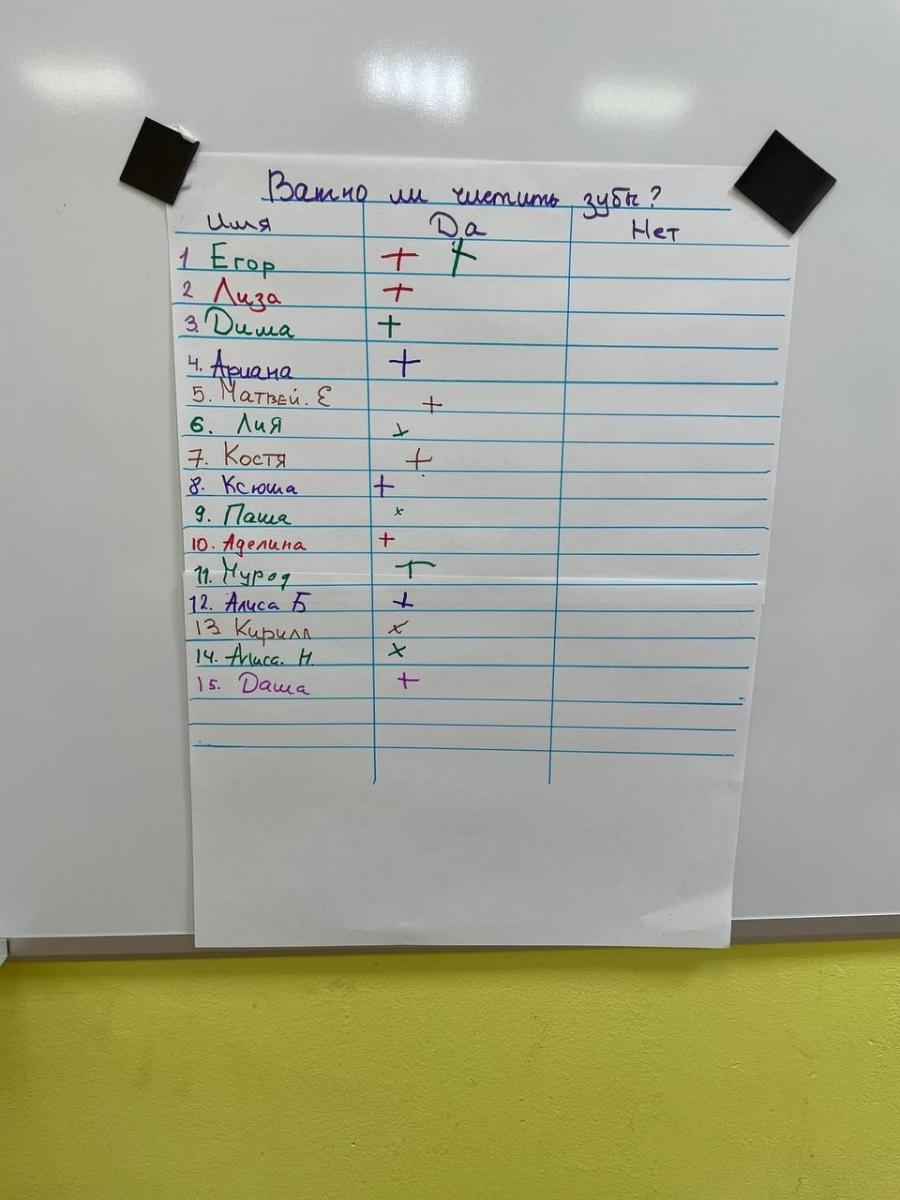 Важно ли чистить зубы?
Имя Да Нет
1 Егор + +
2 Лиза +
3. Дима +
4. Ариана +
5. Матвей. Е +
6. Лия +
7. Костя +
8. Ксюша +
9. Паша ×
10. Аделина +
11. Мурод +
12. Алиса Б +
13 Кирилл ×
14. Алиса. Н. ×
15. Даша +